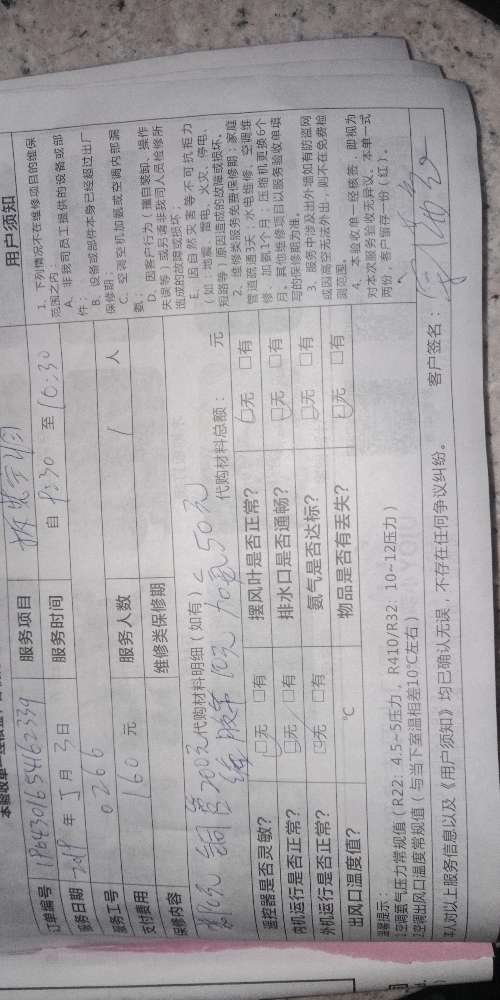 本验收单一经核
订单编号 1864301654623 39 服务项目 拆装空调
服务日期 2019 年 5 月 3 日 服务时间 自 8:30 至 10:30
服务工号 0266
支付费用 160 元 服务人数 1 人
保修内容 维修类保修期
代购材料明细（如有） 代购材料总额： 元
铜管200元
加氟50元
遥控器是否灵敏？ 无 有 摆风叶是否正常？ 无 有
内机运行是否正常？ 无 有 排水口是否通畅？ 无 有
外机运行是否正常？ 无 有 氨气是否达标？ 无 有
出风口温度值？ ℃ 物品是否有丢失？ 无 有
温馨提示：
1空调氨气压力常规值（R22：4.5~5压力，R410/R32：10~12压力）
2空调出风口温度常规值（与当下室温相差10℃左右）
本人对以上服务信息以及《用户须知》均已确认无误，不存在任何争议纠纷。 客户签名：
用户须知
1、下列情况不在维修项目的维保
范围之内：
A、非我司员工提供的设备或部
件；
B、设备或部件本身已经超过出厂
保修期；
C、空调空机加氨或空调内部漏
氨；
D、因客户行为（擅自装卸、操作
失误等）或另请非我司人员检修所
造成的故障或损坏；
E、因自然灾害等不可抗拒力
（如：地震、雷电、火灾、停电、
短路等）原因造成的故障或损坏。
2、维修类服务免费保修期：家庭
管道疏通3天，水电维修、空调维
修、加氨1个月，压缩机更换6个
月。其他维修项目以服务验收单填
写的保修期为准。
3、服务中涉及出外墙如有防盗网
或因高空无法外出，则不在免费检
测范围。
4、本验收单一经核签，即视为
对本次服务验收无异议。本单一式
两份，客户留存一份（红）。